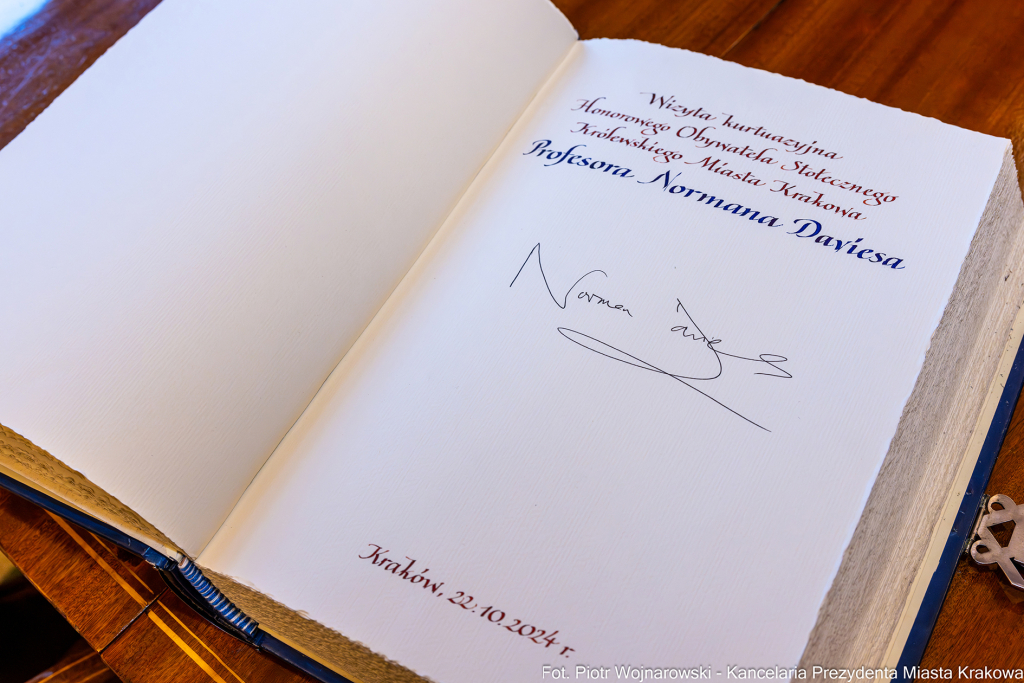 Wizyta kurtuazyjna
Honorowego Obywatela Stołecznego
Królewskiego Miasta Krakowa
Profesora Normana Daviesa
Norman Davies
Kraków, 22.10.2024 r.
Fot. Piotr Wojnarowski - Kancelaria Prezydenta Miasta Krakowa